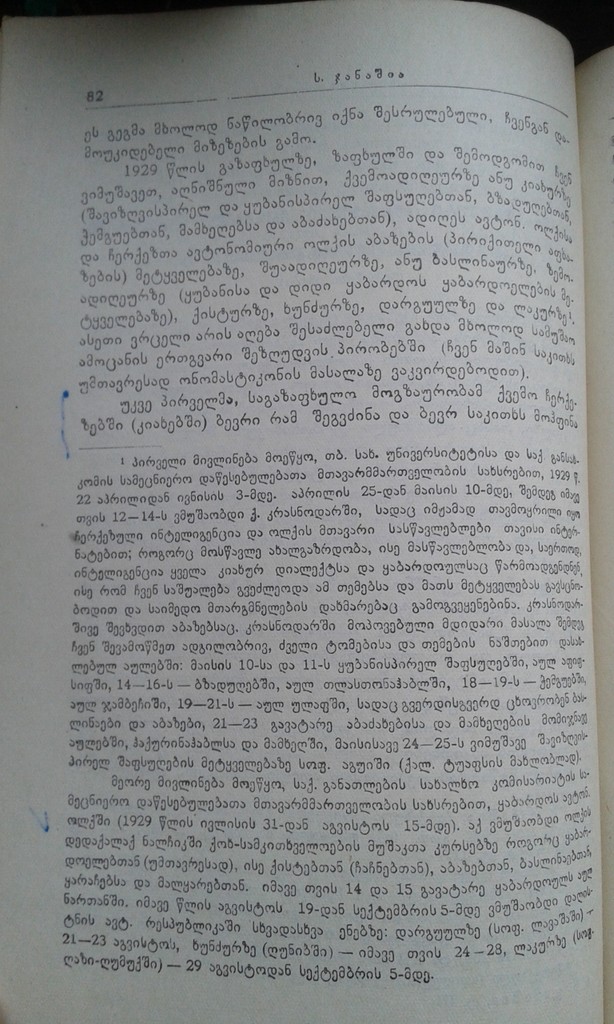 82
ს. ჯანაშია
ეს გეგმა მხოლოდ ნაწილობრივ იქნა შესრულებული, ჩვენგან და-
მოუკიდებელი მიზეზების გამო.
1929 წლის გაზაფხულზე, ზაფხულში და შემოდგომით ჩვენ
ვიმუშავეთ, აღნიშნული მიზნით, ქვემოადიღეურზე ანუ კიახურზე
(შავიზღვისპირელ და ყუბანისპირელ შაფსუღებთან, ბზადუღებთან,
ჰემგუებთან, მამხეღებსა და აბაძახებთან), ადიღეს ავტონ. ოლქისა
და ჩერქეზთა ავტონომიური ოლქის აბაზების (პირიქითელი აფხა-
ზების) მეტყველებაზე, შუაადიღეურზე, ანუ ბასლინაურზე, ზემო-
ადიღეურზე (ყუბანისა და დიდი ყაბარდოს ყაბარდოელების მე-
ტყველებაზე), ქისტურზე, ხუნძურზე, დარგუულზე და ლაკურზე¹.
ასეთი ვრცელი არის აღება შესაძლებელი გახდა მხოლოდ სამუშაო
ამოცანის ერთგვარი შეზღუდვის პირობებში (ჩვენ მაშინ საკითხს
უმთავრესად ონომასტიკონის მასალაზე ვაკვირდებოდით).
უკვე პირველმა, საგაზაფხულო მოგზაურობამ ქვემო ჩერქე-
ზებში (კიახებში) ბევრი რამ შეგვძინა და ბევრ საკითხს მოჰფინა
¹ პირველი მივლინება მოეწყო, თბ. სახ. უნივერსიტეტისა და საქ. განსახ-
კომის სამეცნიერო დაწესებულებათა მთავარმმართველობის სახსრებით, 1929 წ.
22 აპრილიდან ივნისის 3-მდე. აპრილის 25-დან მაისის 10-მდე, შემდეგ იმავე
თვის 12—14-ს ვმუშაობდი ქ. კრასნოდარში, სადაც იმჟამად თავმოყრილი იყო
ჩერქეზული ინტელიგენცია და ოლქის მთავარი სასწავლებლები თავისი ინტერ-
ნატებით; როგორც მოსწავლე ახალგაზრდობა, ისე მასწავლებლობა და, საერთოდ,
ინტელიგენცია ყველა კიახურ დიალექტსა და ყაბარდოულსაც წარმოადგენდნენ,
ისე რომ ჩვენ საშუალება გვეძლეოდა ამ თემებსა და მათს მეტყველებას გავსცნო-
ბოდით და საიმედო მთარგმნელების დახმარებაც გამოგვეყენებინა. კრასნოდარ-
შივე შევხვდით აბაზებსაც. კრასნოდარში მოპოვებული მდიდარი მასალა შემდეგ
ჩვენ შევამოწმეთ ადგილობრივ, ძველი ტომებისა და თემების ნაშთებით დასახ-
ლებულ აულებში: მაისის 10-სა და 11-ს ყუბანისპირელ შაფსუღებში, აულ აფიფ-
სიფში, 14—16-ს — ბზადუღებში, აულ თლასთონაჰაბლში, 18—19-ს — ჰემგუებში,
აულ ჯამბეჩიში, 19—21-ს — აულ ულაფში, სადაც გვერდისგვერდ ცხოვრობენ ბას-
ლინაები და აბაზები, 21—23 გავატარე აბაძახებისა და მამხეღების მომიჯნავე
აულებში, ჰაქურინაჰაბლსა და მამხეღში, მაისისავე 24—25-ს ვიმუშავე შავიზღვის-
პირელ შაფსუღების მეტყველებაზე სოფ. აგუიში (ქალ. ტუაფსის მახლობლად).
მეორე მივლინება მოეწყო, საქ. განათლების სახალხო კომისარიატის სა-
მეცნიერო დაწესებულებათა მთავარმმართველობის სახსრებით, ყაბარდოს ავტონ.
ოლქში (1929 წლის ივლისის 31-დან აგვისტოს 15-მდე). აქ ვმუშაობდი ოლქის
დედაქალაქ ნალჩიკში ქოხ-სამკითხველოების მუშაკთა კურსებზე როგორც ყაბარ-
დოელებთან (უმთავრესად), ისე ქისტებთან (ჩაჩნებთან), აბაზებთან, ბასლინაებთან,
ყარაჩებსა და მალყარებთან. იმავე თვის 14 და 15 გავატარე ყაბარდოულს აულ
ნართანში. იმავე წლის აგვისტოს 19-დან სექტემბრის 5-მდე ვმუშაობდი დაღის-
ტნის ავტ. რესპუბლიკაში სხვადასხვა ენებზე: დარგუულზე (სოფ. ლავაშაში) —
21—23 აგვისტოს, ხუნძურზე (ღუნიბში) — იმავე თვის 24—28, ლაკურზე (სოფ.
ღაზი-ღუმუქში) — 29 აგვისტოდან სექტემბრის 5-მდე.